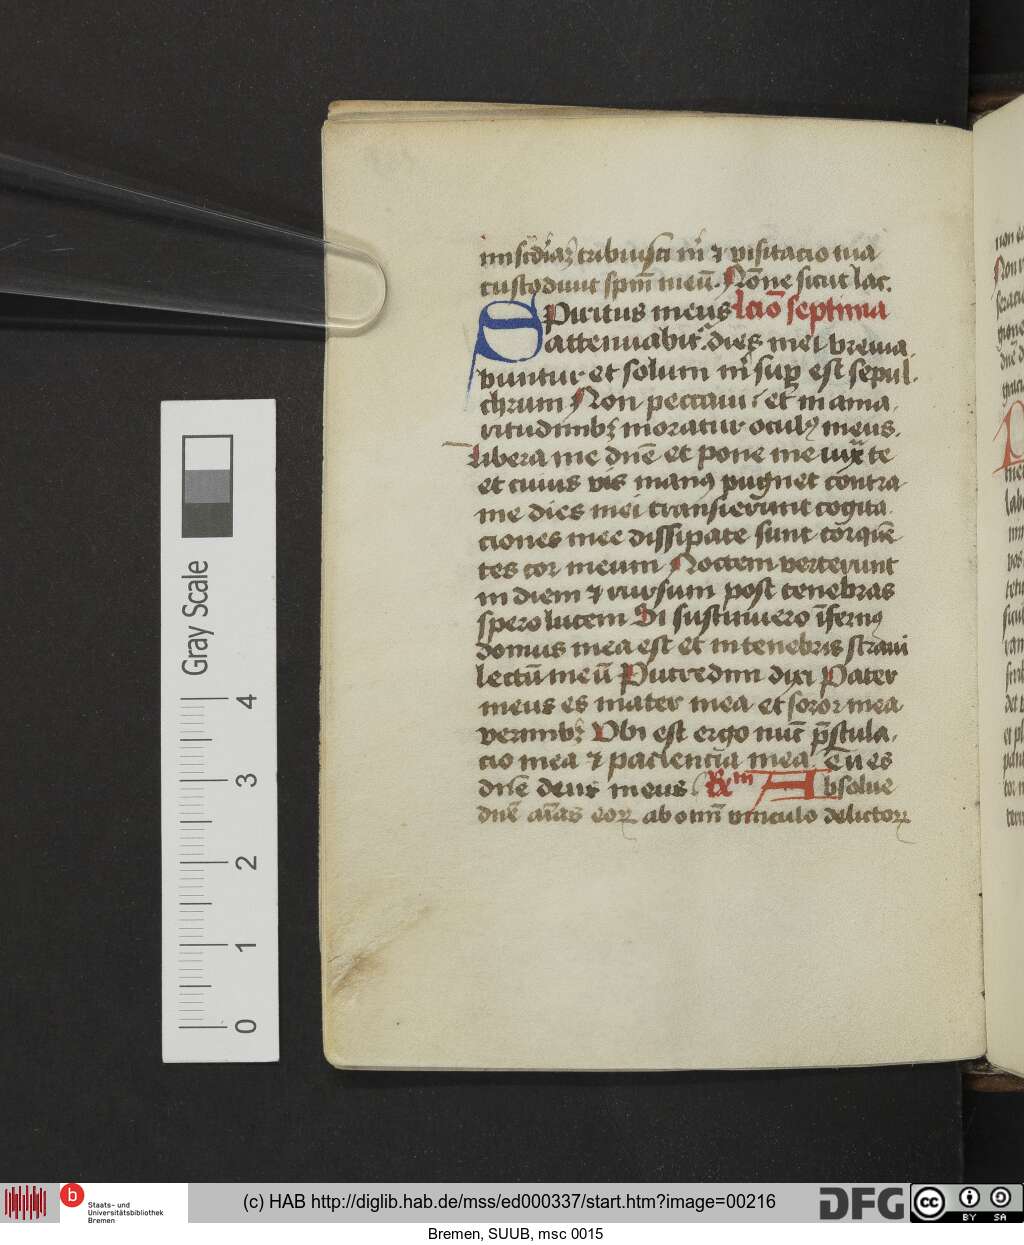 mis͞cdiaꝝ tribuisti m̅ ⁊ visitacio tua
custodiuit spm̅ meu̅. No̅ne sicut lac.
Spiritus meus lc̅io̅ septima
attenuabit᷑ dies mei brevia
buntur et solum m̅ sup̱ est sepul.
chrum Non peccaui et in ama.
ritudinibꝫ moratur oculꝰ meus.
Libera me dn̅e et pone me iux te
et cuius vis manꝰ pugnet contra
me dies mei transierunt cogita.
ciones mee dissipate sunt torque̅
tes cor meum Noctem verterunt
in diem ⁊ rursum post tenebras
spero lucem Si sustinuero i̅fernꝰ
domus mea est et in tenebris straui
lectu̅ meu̅ Putredini dixi Pater
meus es mater mea et soror mea
vermibꝫ Vbi est ergo nu̅c p̅stula.
cio mea ⁊ paciencia mea. Tu es
dn̅e deus meus. Rm Absolue
dn̅e a̅i̅as eoꝝ ab om̅i vinculo delictoꝝ
non
Gray Scale
4
3
2
1
0
b
Staats- und
Universitätsbibliothek
Bremen
(c) HAB http://diglib.hab.de/mss/ed000337/start.htm?image=00216
DFG
cc
BY SA
Bremen, SUUB, msc 0015